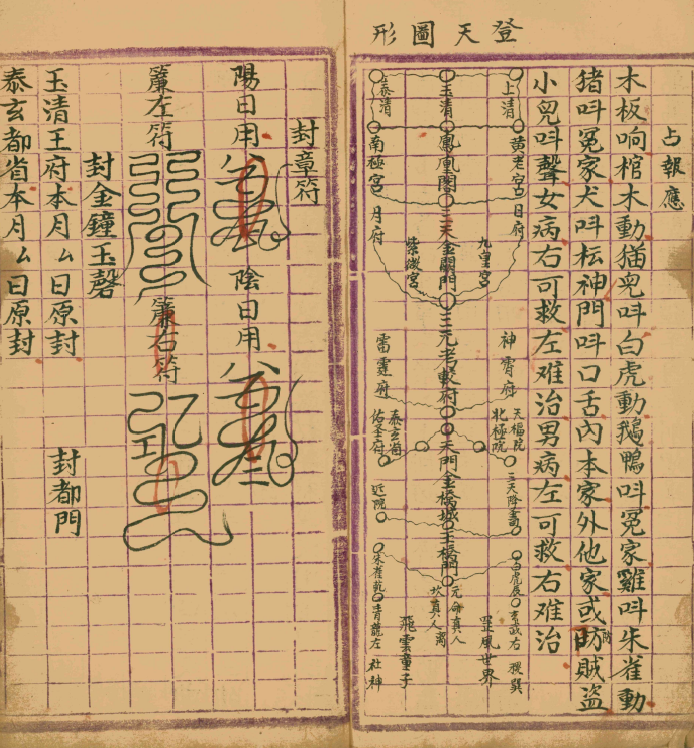 登天圖形
占報應
木板响棺木動猫兒呌白虎動鵝鴨呌冤家雞呌朱雀動
猪呌冤家犬呌枟神門呌口舌內本家外他家或防賊盜
小兒呌聲女病右可救左难治男病左可救右难治
上清
玉清
泰清
黄老宮
日府
鳳凰閣
南極宮
月府
三天金闕門
九皇宮
紫微宮
三元考較府
神霄府
雷霆府
天樞院
北極院
泰玄省
佑圣府
天門金橋城
三天降書
近院
玉橋門
白虎辰
玄武右
朱雀乾
青龍左
社神
元命真人
坎真人离
罡風世界
飛雲童子
封章符
陽日用
陰日用
簾左符
簾右符
封金鐘玉磬
封都門
玉清王府本月厶日原封
泰玄都省本月厶日原封